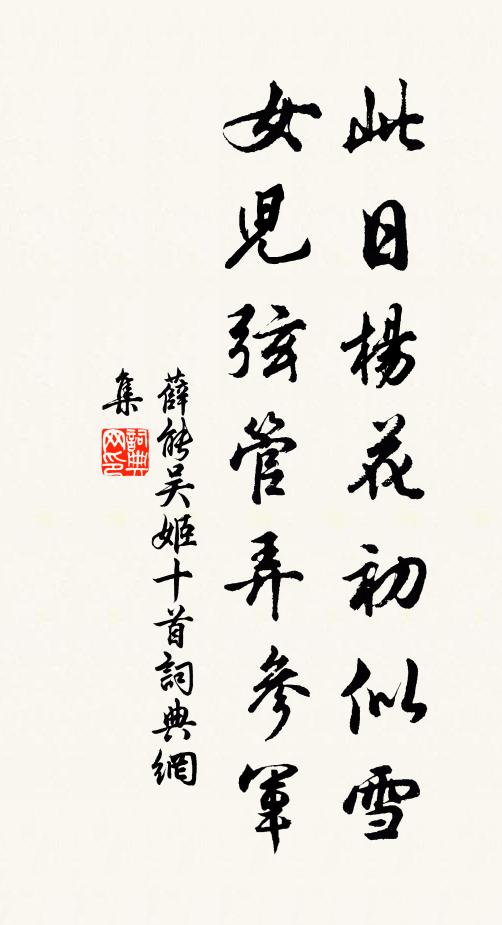 此日楊花初似雪
女児弦管弄參軍
薛能吳姬十首詞典網
集
詞典
网印